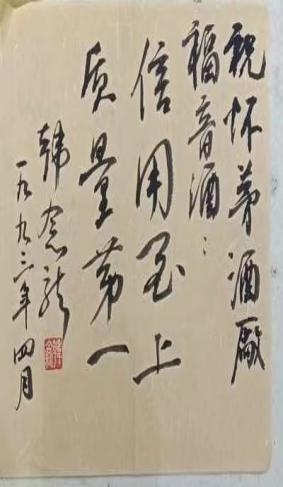 祝怀茅酒厰
福音酒：
信用至上
质量第一
韩念龙
一九九二年四月